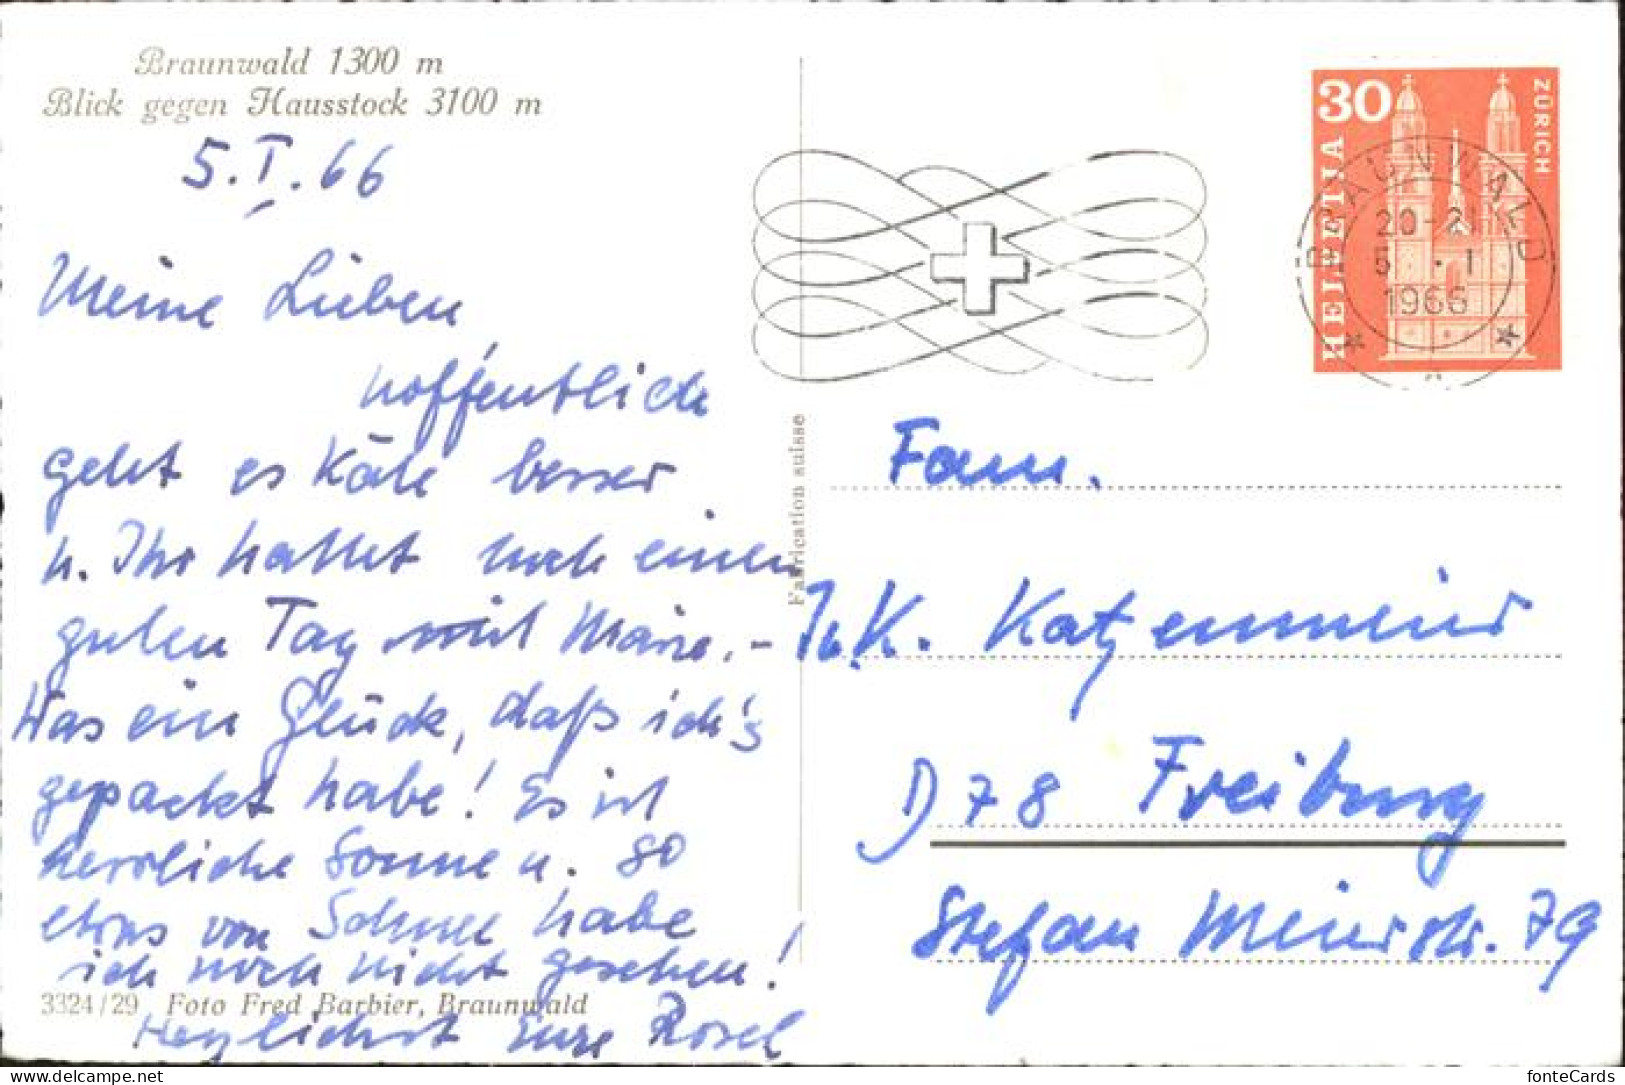 Braunwald 1300 m
Blick gegen Hausstock 3100 m
5. I. 66
Meine Lieben
hoffentlich
geht es Käte besser
u. Ihr hattet noch einen
guten Tag mit Marie. -
Was ein Glück, daß ich's
gepackt habe! Es ist
herrliche Sonne u. so
etwas von Schnee habe
ich noch nicht gesehen!
3324/29 Foto Fred Barbier, Braunwald
Herzlichst Eure Rosel
Fabrication suisse
30
HELVETIA
ZÜRICH
BRAUNWALD
20-21
5. · 1
1966
Fam.
K. Katzenmeier
D 78 Freiburg
Stefan Meierstr. 79
fonteCards
www.delcampe.net